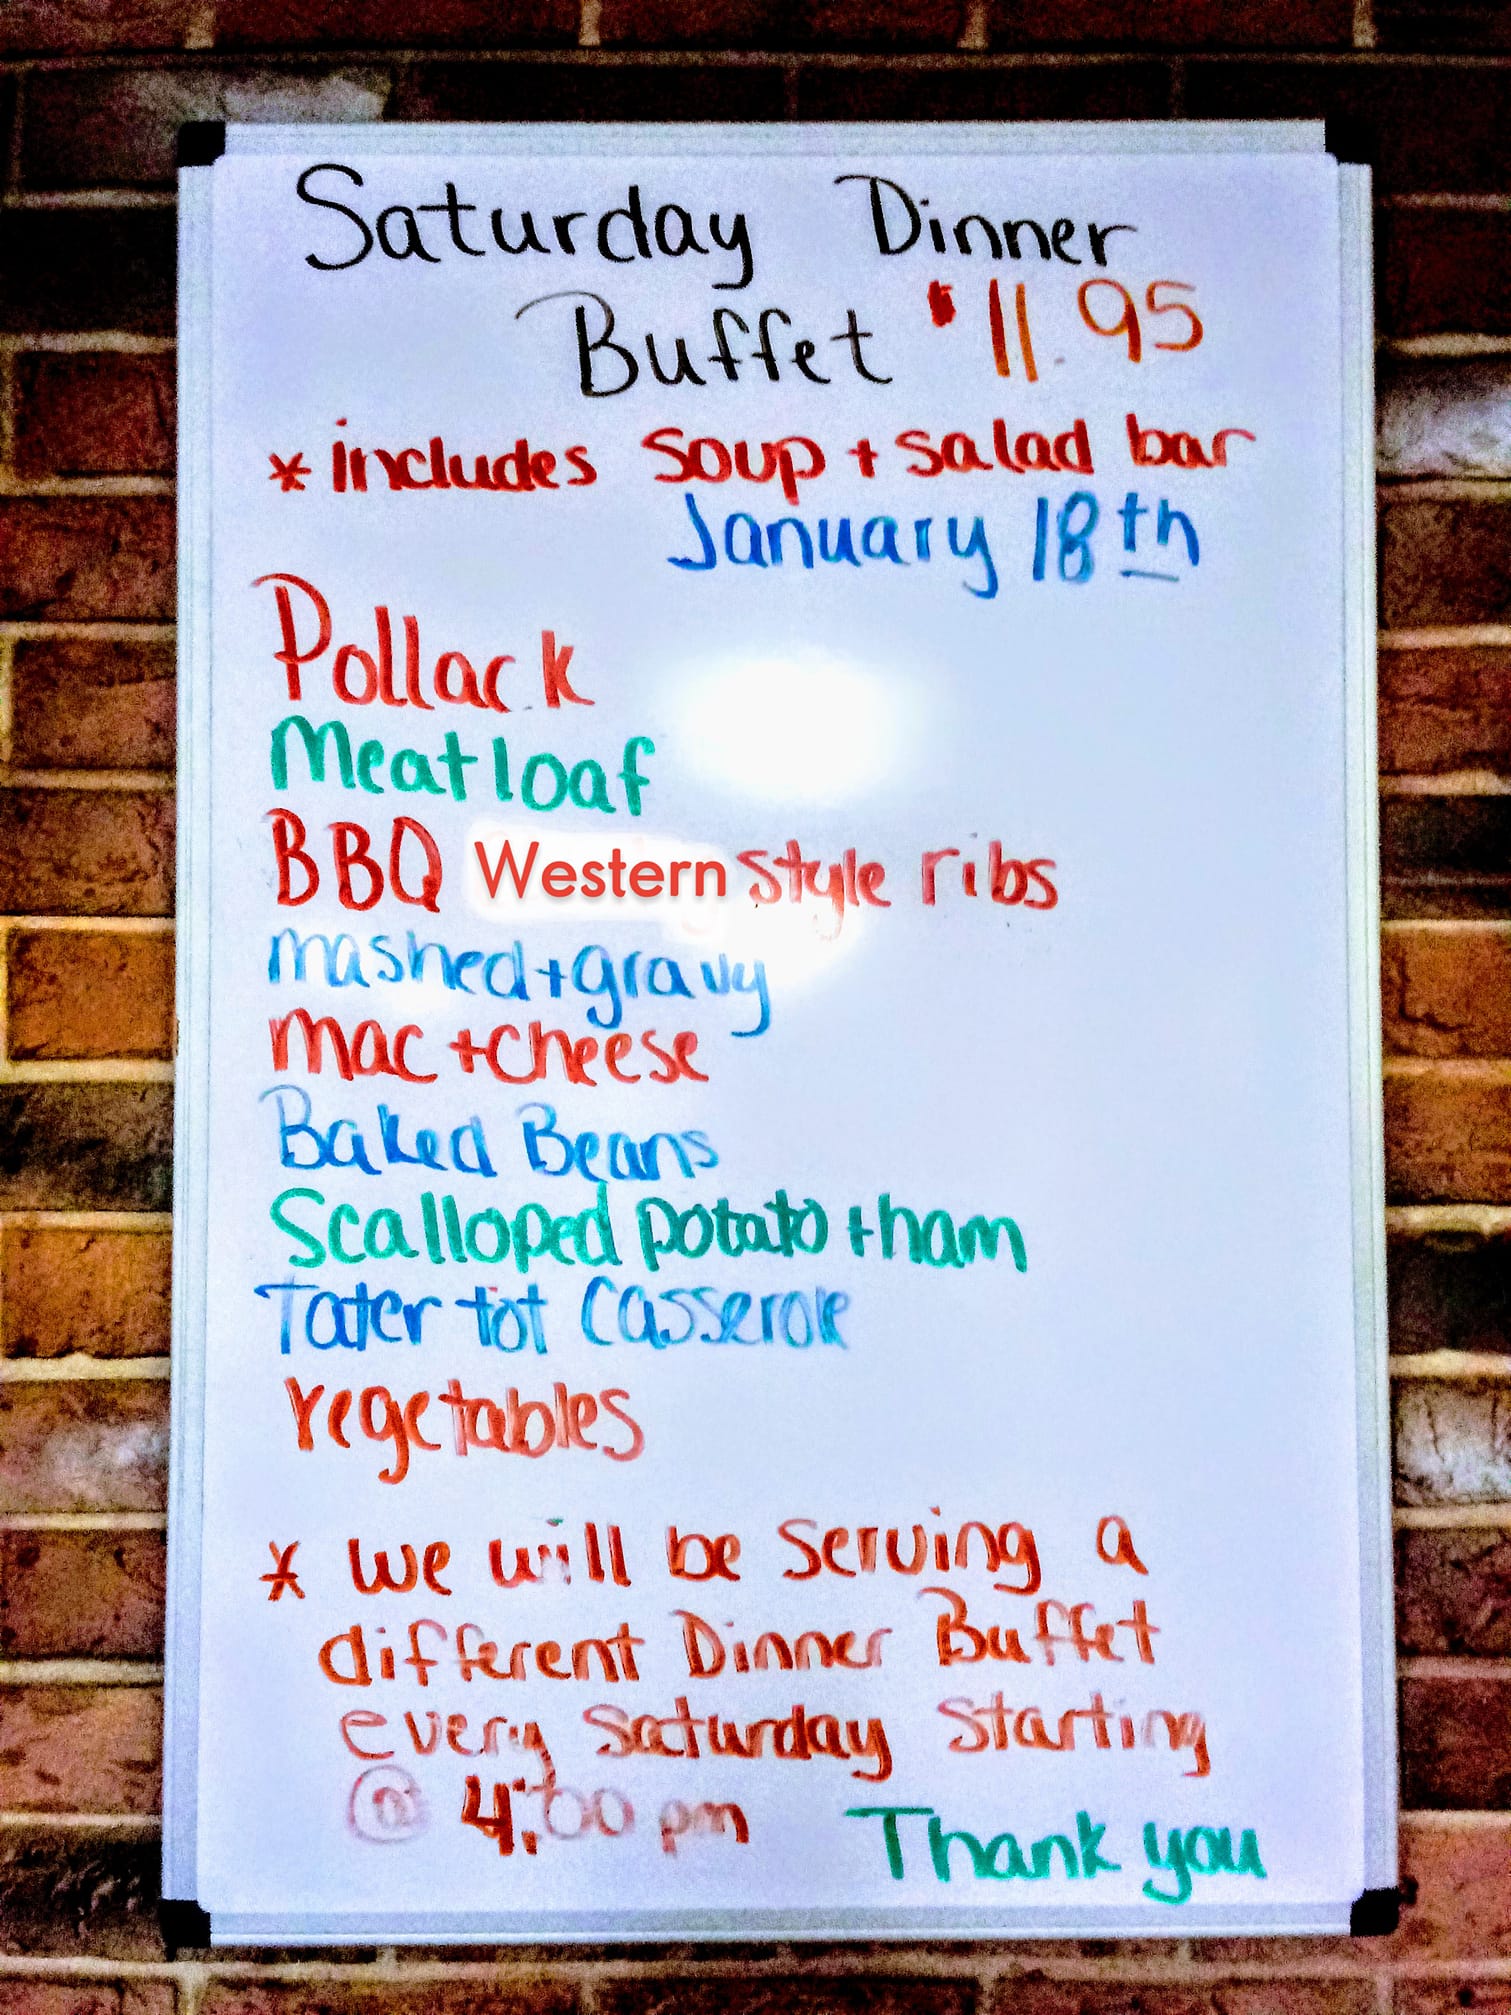 Saturday Dinner
Buffet $11.95
* includes soup + salad bar
January 18th
Pollack
Meatloaf
BBQ Western style ribs
mashed + gravy
mac + cheese
Baked Beans
Scalloped potato + ham
Tater tot Casserole
vegetables
* we will be serving a
different Dinner Buffet
every Saturday starting
@ 4:00 pm Thank you